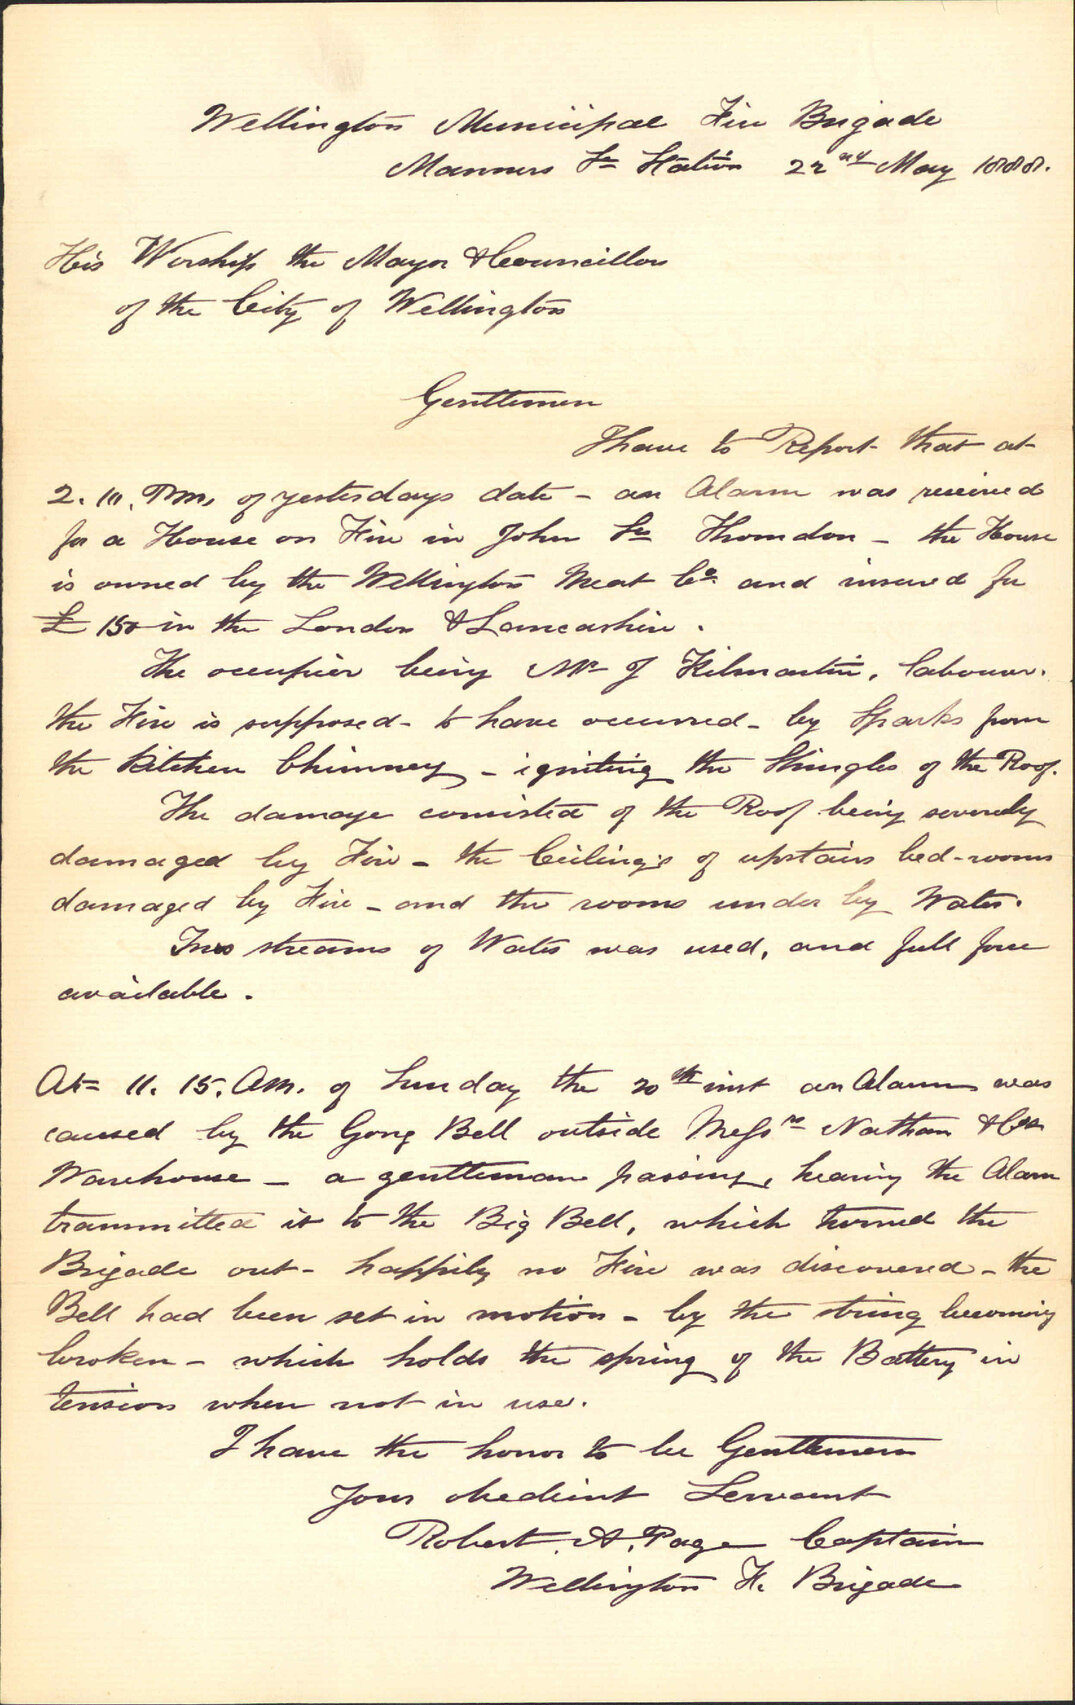 Wellington Municipal Fire Brigade
Manners St Station 22nd May 1888.
His Worship the Mayor & Councillors
of the City of Wellington
Gentlemen
I have to Report that at
2.10. Pm, of yesterdays date - an Alarm was received
for a House on Fire in John St Thorndon - the House
is owned by the Wellington Meat Co. and insured for
£150 in the London & Lancashire.
The occupier being Mr J Kilmartin, labourer.
the Fire is supposed - to have occurred - by Sparks from
the Kitchen Chimney - igniting the Shingles of the Roof.
The damage consisted of the Roof being severely
damaged by Fire - the Ceilings of upstairs bed-rooms
damaged by Fire - and the rooms under by Water.
Two streams of Water was used, and full force
available.
At 11.15. Am. of Sunday the 20th inst an Alarm was
caused by the Gong Bell outside Messrs Nathan & Cos
Warehouse - a gentleman passing, hearing the Alarm
transmitted it to the Big Bell, which turned the
Brigade out - happily no Fire was discovered - the
Bell had been set in motion - by the string becoming
broken - which holds the spring of the Battery in
tension when not in use.
I have the honor to be Gentlemen
Your obedient Servant
Robert. A. Page Captain
Wellington F. Brigade